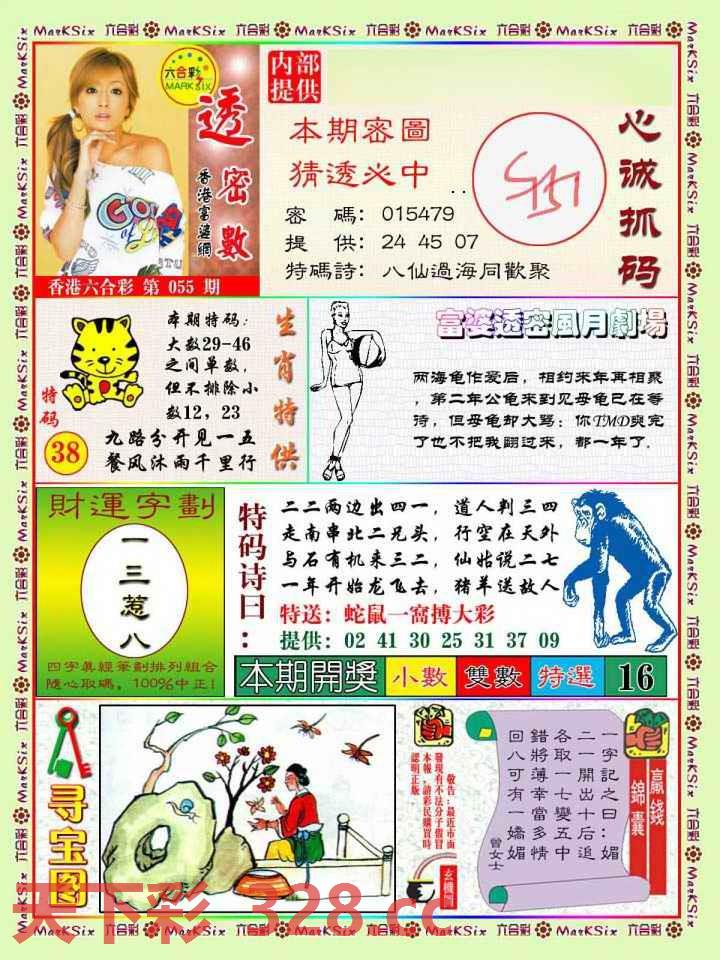 六合彩
MARK SIX
透密數
香港富婆網
香港六合彩 第 055 期
内部
提供
本期密圖
猜透必中
密 碼: 015479
提 供: 24 45 07
特碼詩: 八仙過海同歡聚
心誠抓码
特码
38
本期特码:
大数29-46
之间单数,
但不排除小
数12, 23
九路分开见一五
餐风沐雨千里行
生肖特供
富婆透密風月劇場
两海龟作爱后, 相约来年再相聚
, 第二年公龟来到见母龟已在等
待, 但母龟却大骂: 你TMD爽完
了也不把我翻过来, 都一年了.
財運字劃
一三惹八
四字真經筆劃排列組合
隨心取碼, 100%中正!
特码诗曰:
二二两边出四一, 道人判三四
走南串北二兄头, 行空在天外
与石有机来三二, 仙姑说二七
一年开始龙飞去, 猪羊送故人
特送: 蛇鼠一窩搏大彩
提供: 02 41 30 25 31 37 09
本期開獎
小數
雙數
特選
16
寻宝图
敬告: 最近市面
發現有不法分子假冒
本報, 請彩民購買時
認明正版
玄機
贏錢
錦囊
一字記之曰: 媚
二一開出十后追
各取一七變五中
錯將薄幸當多情
回八可有一嬌媚
曾女士
天下彩 328.cc
六合彩 MarKSix 六合彩 MarKSix 六合彩 MarKSix 六合彩 MarKSix 六合彩 MarKSix